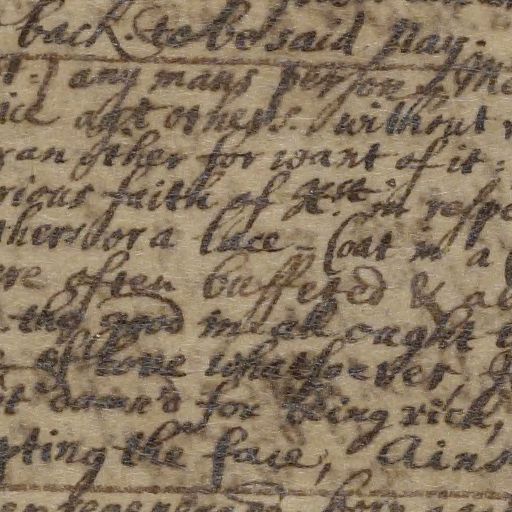 back. to be said Nay.
any mans person
ice agst others. without
an other for want of it:
rious faith of Xst. in respe
thers or a lace-Coat in a
ere often buffeted & a
the good ought
of love whatsoever
damn'd for being rich,
pting the face, Ains